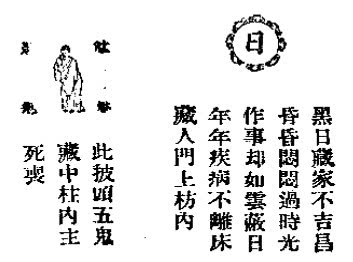 日
黑日藏家不吉昌
昏昏悶悶過時光
作事却如雲蔽日
年年疾病不離床
藏人門上枋內
此披頭五鬼
藏中柱內主
死喪